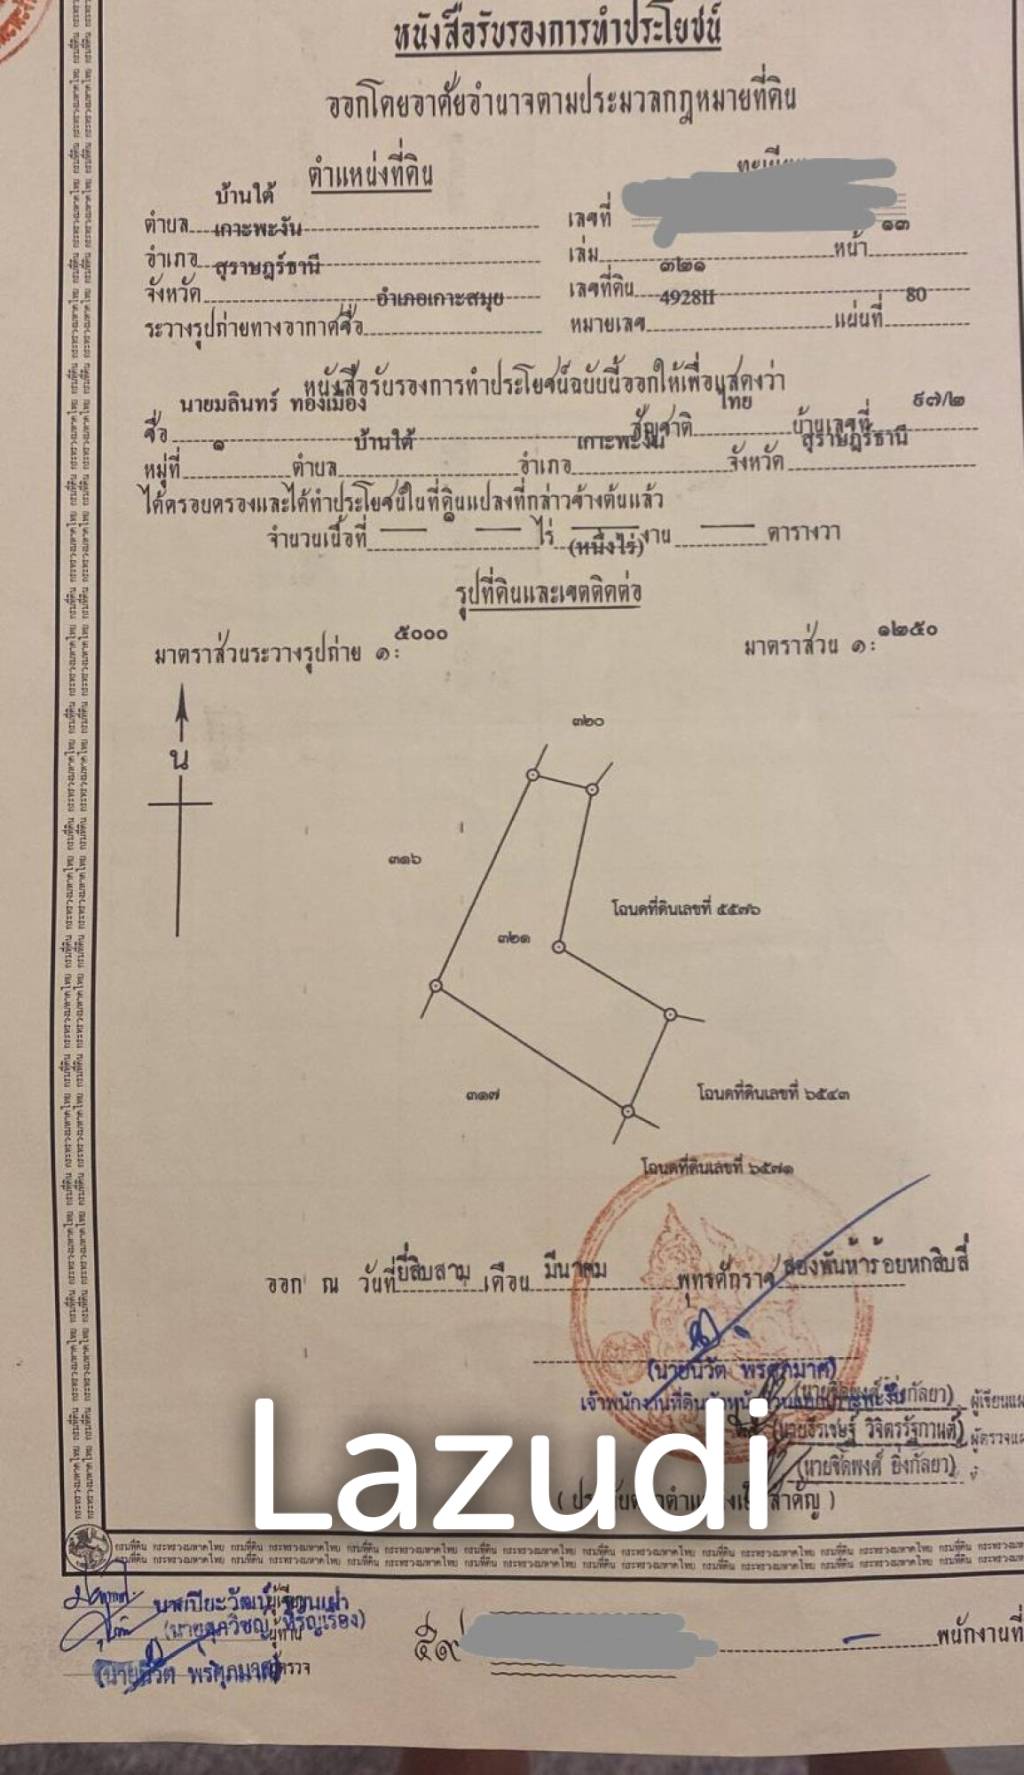 หนังสือรับรองการทำประโยชน์
ออกโดยอาศัยอำนาจตามประมวลกฎหมายที่ดิน
ตำแหน่งที่ดิน
บ้านใต้
ตำบล เกาะพะงัน เลขที่
อำเภอ สุราษฎร์ธานี เล่ม หน้า ๑๓
จังหวัด อำเภอเกาะสมุย เลขที่ดิน ๓๒๑
ระวางรูปถ่ายทางอากาศชื่อ หมายเลข 4928II แผ่นที่ 80
หนังสือรับรองการทำประโยชน์ฉบับนี้ออกให้เพื่อแสดงว่า
ชื่อ นายมลินทร์ ทองเมือง สัญชาติ ไทย บ้านเลขที่ ๙๗/๒
หมู่ที่ ๑ ตำบล บ้านใต้ อำเภอ เกาะพะงัน จังหวัด สุราษฎร์ธานี
ได้ครอบครองและได้ทำประโยชน์ในที่ดินแปลงที่กล่าวข้างต้นแล้ว
จำนวนเนื้อที่ ๑ ไร่ งาน ตารางวา
(หนึ่งไร่)
รูปที่ดินและเขตติดต่อ
มาตราส่วนระวางรูปถ่าย ๑: ๕๐๐๐ มาตราส่วน ๑: ๑๒๕๐
น
๓๒๐
๓๑๖
โฉนดที่ดินเลขที่ ๕๕๗๖
๓๒๑
๓๑๗
โฉนดที่ดินเลขที่ ๖๕๔๓
โฉนดที่ดินเลขที่ ๖๕๗๑
ออก ณ วันที่ ยี่สิบสาม เดือน มีนาคม พุทธศักราช สองพันห้าร้อยหกสิบสี่
(นายนิวัต พรศุภมาศ)
(นายชิดพงศ์ ยิ่งกัลยา)
(นายธีรเชษฐ์ วิจิตรรัฐกานต์)
(นายชิดพงศ์ ยิ่งกัลยา)
Lazudi
(นายนิวัต พรศุภมาศ)
พนักงานที่